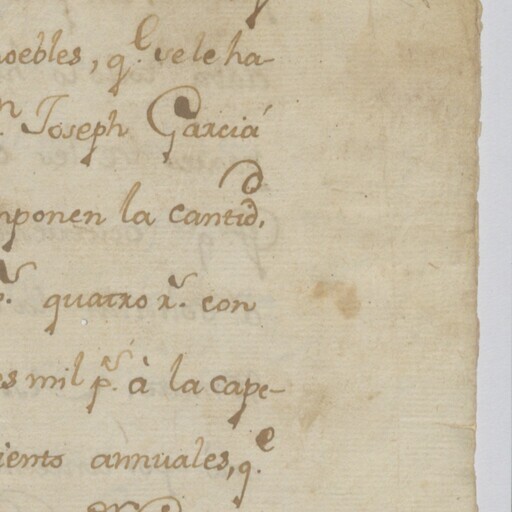 moebles, q.^e se le ha-
n. Joseph Garcia
mponen la cantid.^d
p.^s quatro r.^s con
es mil p.^s à la cape-
iento annuales, q.^e